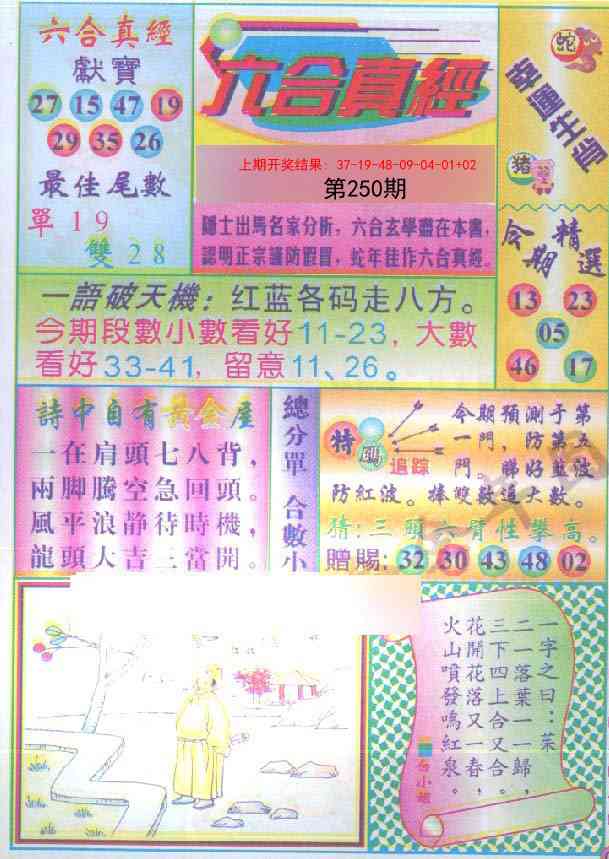 六合真經
獻寶
27 15 47 19
29 35 26
最佳尾數
單 1 9
雙 2 8
六合真經
上期开奖结果：37-19-48-09-04-01+02
第250期
隱士出馬名家分析，六合玄學盡在本書，
認明正宗謹防假冒，蛇年佳作六合真經。
蛇
猪
今期精選
13 23
05
46 17
一語破天機：红蓝各码走八方。
今期段數小數看好11-23，大數
看好33-41，留意11、26。
詩中自有黃金屋
一在肩頭七八背，
兩脚騰空急回頭。
風平浪静待時機，
龍頭大吉三當開。
總分單 合數小
特碼
追踪
今期預測于第
一門，防第五
門。睇好藍波
防紅波。捧雙數過大數。
猜：三頭六臂性攀高。
贈賜：32 30 43 48 02
一字之曰：茱
二一落葉一一歸，
三下四上合又合，
花開花落又一春，
火山噴發鳴紅泉。